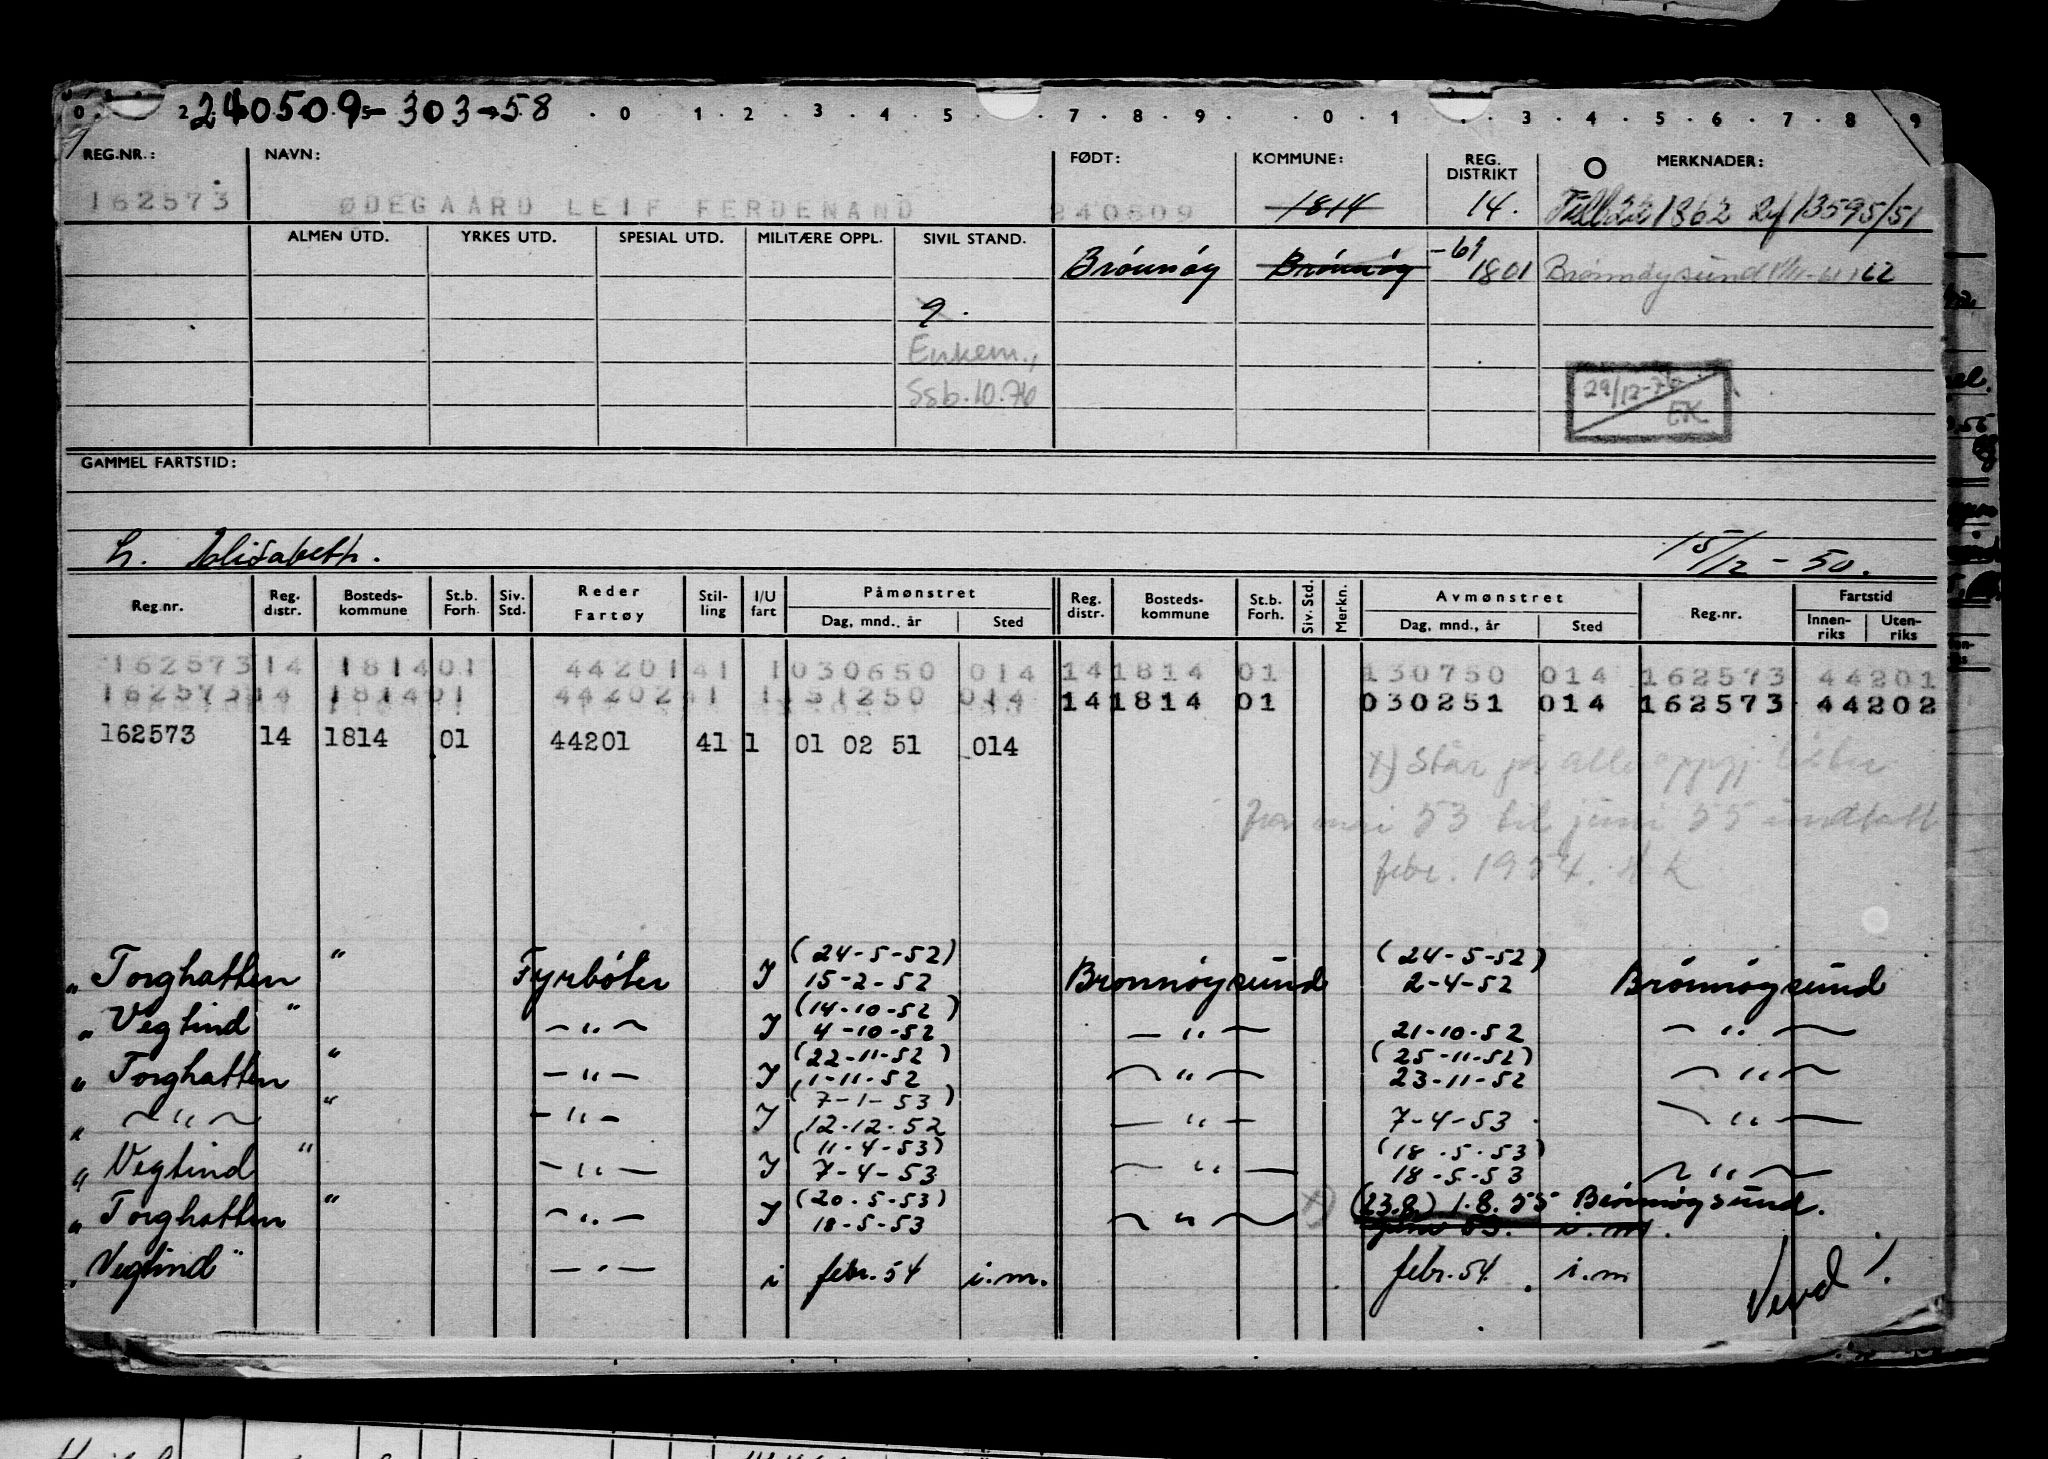 240509-303-58
0 1 2 3 4 5 7 8 9 0 1 3 4 5 6 7 8 9
REG.NR.: NAVN: FØDT: KOMMUNE: REG. DISTRIKT MERKNADER:
162573 ØDEGAARD LEIF FERDENAND 240509 1814 14. 1362 13595/51
ALMEN UTD. YRKES UTD. SPESIAL UTD. MILITÆRE OPPL. SIVIL STAND.
Brönnöy Brönnöy -61 1801 Brönnöysund 62
g.
Enkem.,
Ssb.10.76
29/12-76
EK
GAMMEL FARTSTID:
h. Elisabeth. 15/12-50.
Reg.nr. Reg. distr. Bosteds-kommune St.b. Forh. Siv. Std. Reder Fartøy Stil-ling I/U fart Påmønstret Reg. distr. Bosteds-kommune St.b. Forh. Siv. Std. Merkn. Avmønstret Reg.nr. Fartstid
Dag, mnd., år Sted Dag, mnd., år Sted Innen-riks Uten-riks
162573 14 1814 01 44201 41 1 030650 014 14 1814 01 130750 014 162573 44201
162573 14 1814 01 44202 41 1 151250 014 14 1814 01 030251 014 162573 44202
162573 14 1814 01 44201 41 1 01 02 51 014
x) Står på alle oppgj. lister
fra mai 53 til juni 55 undtatt
febr. 1954. H K
(24-5-52) (24-5-52)
" Torghatten " Fyrböter I 15-2-52 Brönnöysund 2-4-52 Brönnöysund
(14-10-52)
" Vegtind " - " - I 4-10-52 - " - 21-10-52 - " -
(22-11-52) (25-11-52)
" Torghatten " - " - I 1-11-52 - " - 23-11-52 - " -
(7-1-53)
" - " - " - " - I 12-12-52 - " - 7-4-53 - " -
(11-4-53) (18-5-53)
" Vegtind " - " - I 7-4-53 - " - 18-5-53 - " -
(20-5-53) x) (23.8.) 1.8.55 Brönnöysund.
" Torghatten " - " - I 18-5-53 - " - juni 53. i.m.
" Vegtind " - " - i febr. 54 i.m. febr. 54. i.m
Vend!